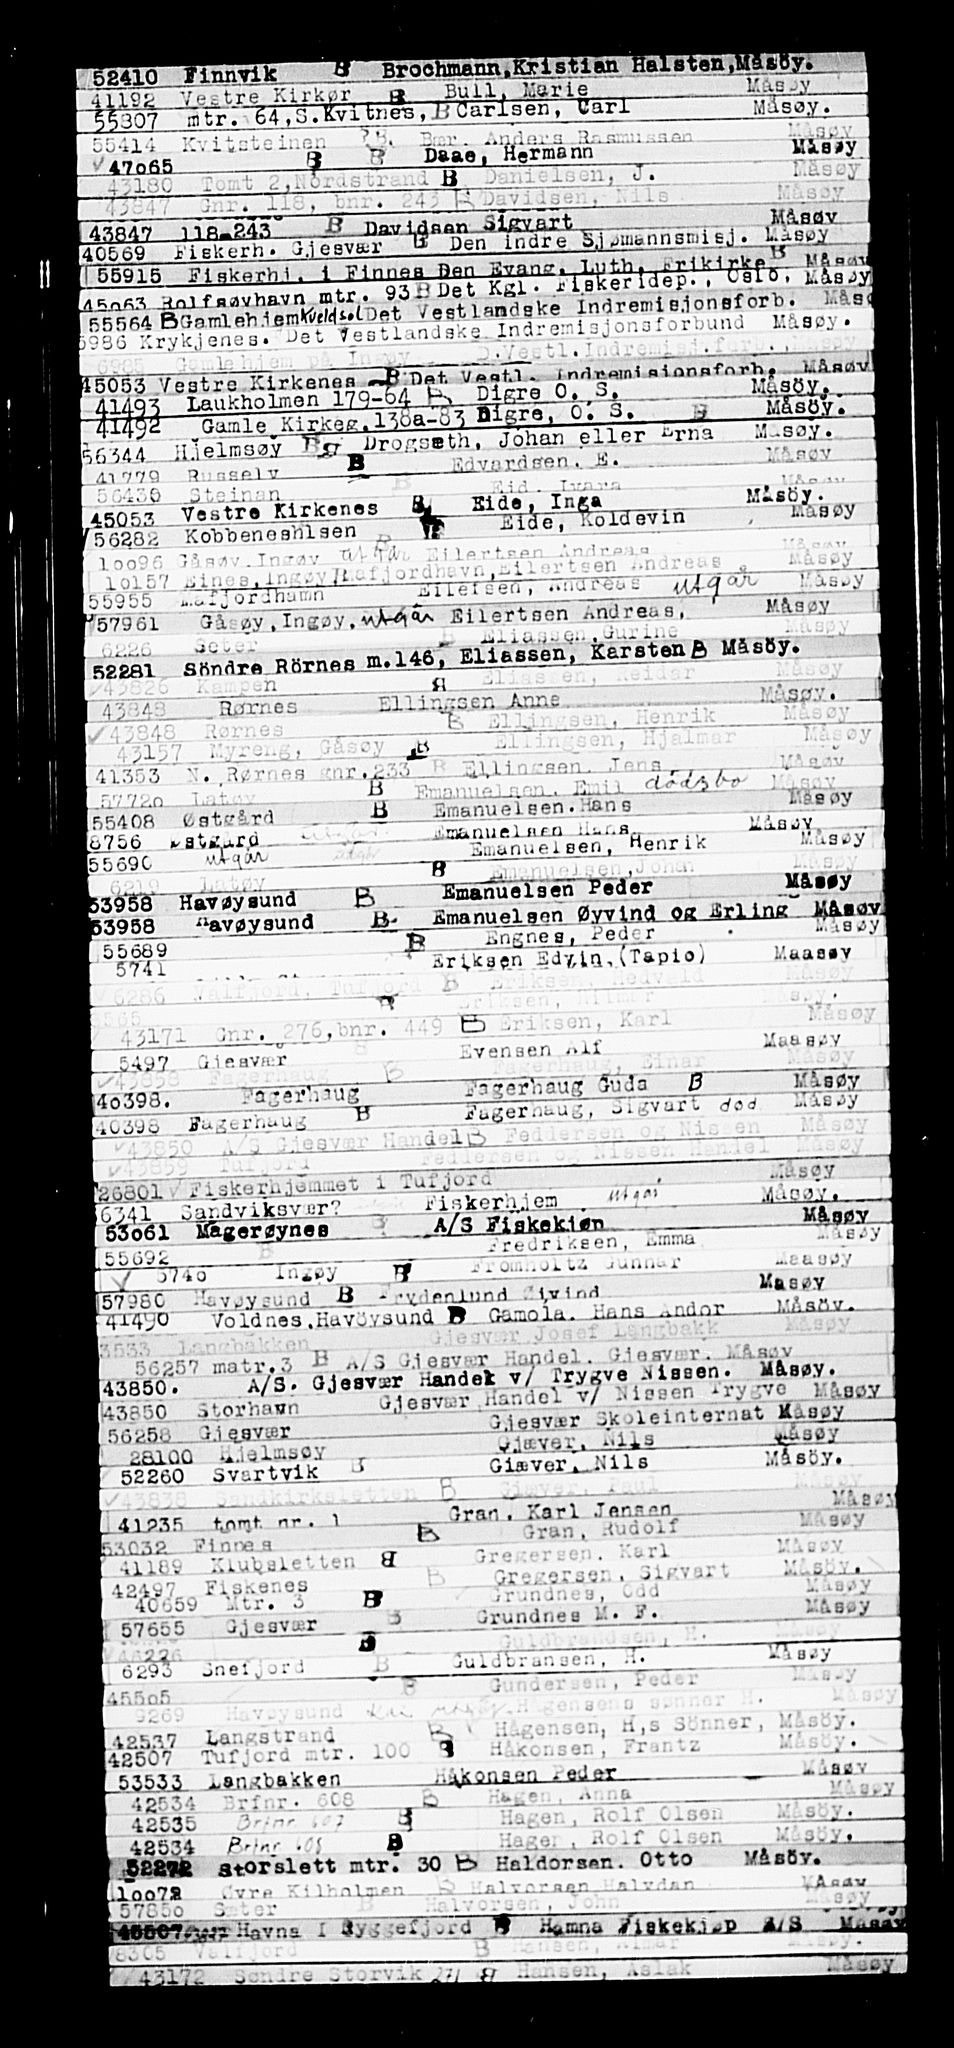 52410 Finnvik B Brochmann, Kristian Halsten, Måsöy.
41192 Vestre Kirkør B Bull, Marie Måsøy
55807 mtr. 64, S. Kvitnes, B Carlsen, Carl Måsøy.
55414 Kvitsteinen Bær. Anders Rasmussen Måsøy
47065 B B Daae, Hermann Måsøy
43180 Tomt 2, Nordstrand B Danielsen, J. Måsøy
43847 Gnr. 118, bnr. 243 B Davidsen, Nils Måsøy
43847 118-243 B Davidsen Sigvart Måsøy
40569 Fiskerh. Gjesvær B Den indre Sjømannsmisj. Måsøy
55915 Fiskerhj. i Finnes Den Evang. Luth. Frikirke B Måsøy
45063 Rolfsøyhavn mtr. 93 B Det Kgl. Fiskeridep., Oslo, Måsøy
55564 B Gamlehjem Kveldsol Det Vestlandske Indremisjonsforb. Måsø
5986 Krykjenes. Det Vestlandske Indremisjonsforbund Måsøy.
Gamlehjem på Ingøy D. Vestl. Indremisj.forb., Måsøy
45053 Vestre Kirkenes B Det Vestl. Indremisjonsforb. Måsøy
41493 Laukholmen 179-64 B Digre O. S. Måsöy.
41492 Gamle Kirkeg. 138a-83 Digre, O. S. B Måsöy.
56344 Hjelmsøy B Drogseth, Johan eller Erna Måsøy.
41779 Russelv B Edvardsen. E. Måsøy
56430 Steinan B Eid. Måsøy
45053 Vestre Kirkenes B Eide, Inga Måsöy.
56282 Kobbeneshlsen Eide, Koldevin Måsøy
10096 Gåsøy, Ingøy utgår Eilertsen Andreas Måsøy
10157 Eines, Ingøy Mafjordhavn, Eilertsen Andreas Måsøy
55955 Mafjordhamn Eilefsen, Andreas utgår Måsøy
57961 Gåsøy, Ingøy, utgår Eilertsen Andreas, Måsøy
6226 Seter B Eliassen, Gurine Måsøy
52281 Söndre Rörnes m.146, Eliassen, Karsten B Måsöy.
43826 Kampen B Eliassen, Reidar Måsøy
43848 Rørnes Ellingsen Anne Måsøy.
43848 Rørnes B Ellingsen, Henrik Måsøy
43157 Myreng, Gåsøy B Ellingsen, Hjalmar Måsøy
41353 N. Rørnes gnr.233 B Ellingsen. Jens Måsøy
57720 Latøy B Emanuelsen. Emil dødsbo Måsøy
55408 Østgård B Emanuelsen. Hans Måsøy
8756 Østgård utgår Emanuelsen Hans Måsøy
55690 utgår Emanuelsen, Henrik Måsøy
6219 Latøy B Emanuelsen, Johan Måsøy
53958 Havøysund B Emanuelsen Peder Måsøy
53958 Havøysund B Emanuelsen Øyvind og Erling Måsøy
55689 B Engnes, Peder Måsøy
5741 Eriksen Edvin. (Tapio) Maasøy
6286 Valfjord, Tufjord B Eriksen, Hedvald Måsøy
Eriksen, Hilmar Måsøy.
43171 Gnr. 276, bnr. 449 B Eriksen, Karl Måsøy
5497 Gjesvær Evensen Alf Maasøy
43858 Fagerhaug B Fagerhaug, Einar Måsøy
40398. Fagerhaug Fagerhaug Guda B Måsøy
40398 Fagerhaug B Fagerhaug, Sigvart død Måsøy
43850 A/S Gjesvær Handel B Feddersen og Nissen Måsøy
43859 Tufjord Feddersen og Nissen Handel Måsøy
26801 Fiskerhjemmet i Tufjord Måsøy
6341 Sandviksvær? Fiskerhjem utgår Måsøy.
53061 Magerøynes A/S Fiskekjøp Måsøy
55692 B Fredriksen, Emma Måsøy
5746 Ingøy B Fromholtz Gunnar Maasøy
57980 Havøysund B Frydenlund Øivind Måsøy
41490 Voldnes, Havöysund B Gamola. Hans Andor Måsöy.
3533 Langbakken Gjesvær Josef Langbakk Måsøy
56257 matr.3 B A/S Gjesvær Handel. Gjesvær. Måsøy
43850. A/S. Gjesvær Handel v/ Trygve Nissen. Måsøy.
43850 Storhavn Gjesvær Handel v/ Nissen Trygve Måsøy
56258 Gjesvær Gjesvær Skoleinternat Måsøy
28100 Hjelmsøy Gjæver, Nils Måsøy
52260 Svartvik B Giæver, Nils Måsöy.
43838 Sandkirksletten B Giæver, Paul Måsøy
41235 tomt nr. 1 Gran. Karl Jensen Måsøy
53032 Finnes B Gran, Rudolf Måsøy
41189 Klubsletten B Gregersen. Karl Måsøy
42497 Fiskenes B Gregersen, Sigvart Måsöy.
40659 Mtr. 3 B Grundnes, Odd Måsøy
57655 Gjesvær B Grundnes M. F. Måsøy
B Guldbrandsen, H. Måsøy
6293 Snefjord B Guldbransen, H. Måsøy
45505 B Gundersen, Peder Måsøy
9269 Havøysund Hågensens sønner H. Måsøy
42537 Langstrand B Hågensen, H,s Sönner, Måsöy.
42507 Tufjord mtr. 100 B Håkonsen, Frantz Måsöy.
53533 Langbakken Håkonsen Peder Måsøy
42534 Brfnr. 608 B Hagen, Anna Måsøy
42535 Brfnr 607 B Hagen, Rolf Olsen Måsöy.
42534 Brfnr 608 B Hagen, Rolf Olsen Måsöy.
52272 Storslett mtr. 30 B Haldorsen. Otto Måsöy.
10072 Øvre Kilholmen B Halvorsen Halvdan Måsøy
57850 Sæter B Halvorsen, John Måsøy
45507 Havna I Ryggefjord B Hamna Fiskekjøp A/S Måsøy
8305 Valfjord B Hansen, Almar Måsøy.
43172 Søndre Storvik 271 B Hansen, Aslak Måsøy